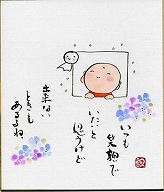 いつも笑顔で
いたいと
思うけど
出来ない
ときも
あるね